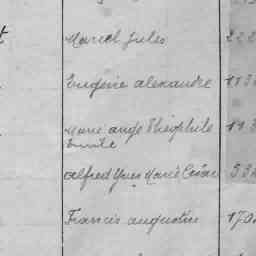 Marcel Jules 222
Eugène alexandre
Marie ange Théophile
Emile
Alfred Yves Marie César 53
Francis augustin 170